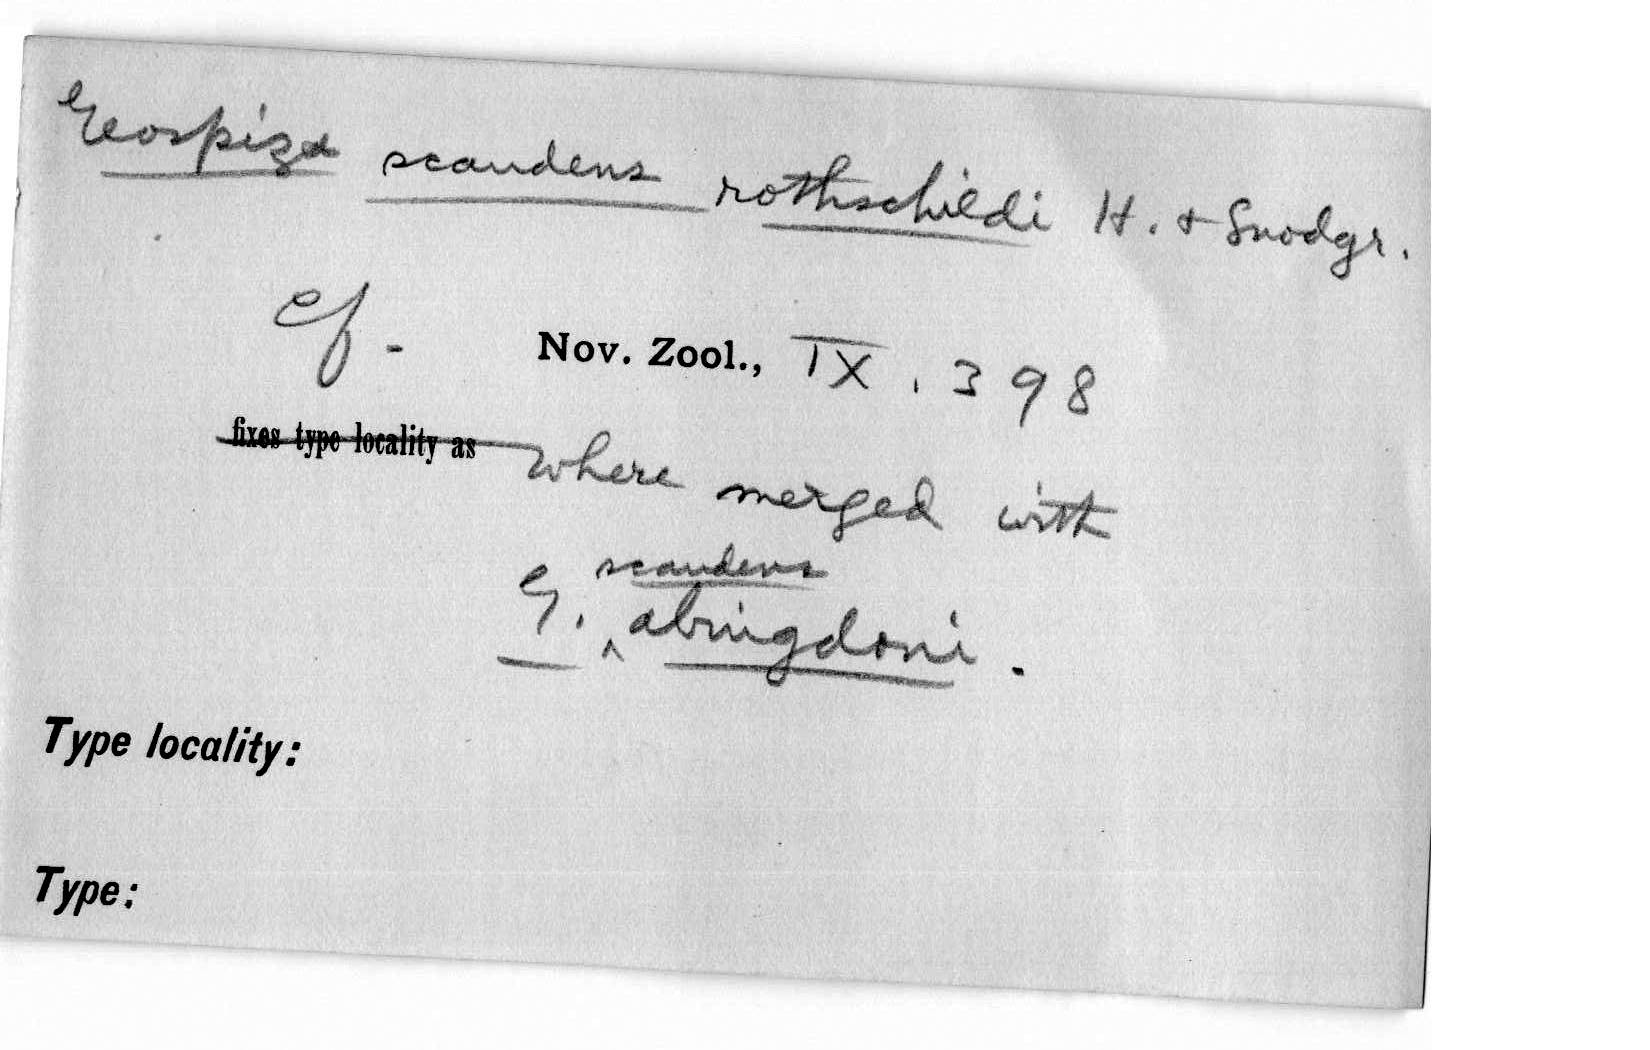 Geospiza scandens rothschildi H. + Snodgr.
cf. Nov. Zool., IX. 398
fixes type locality as where merged with
scandens
G. ^ abingdoni.
Type locality:
Type: